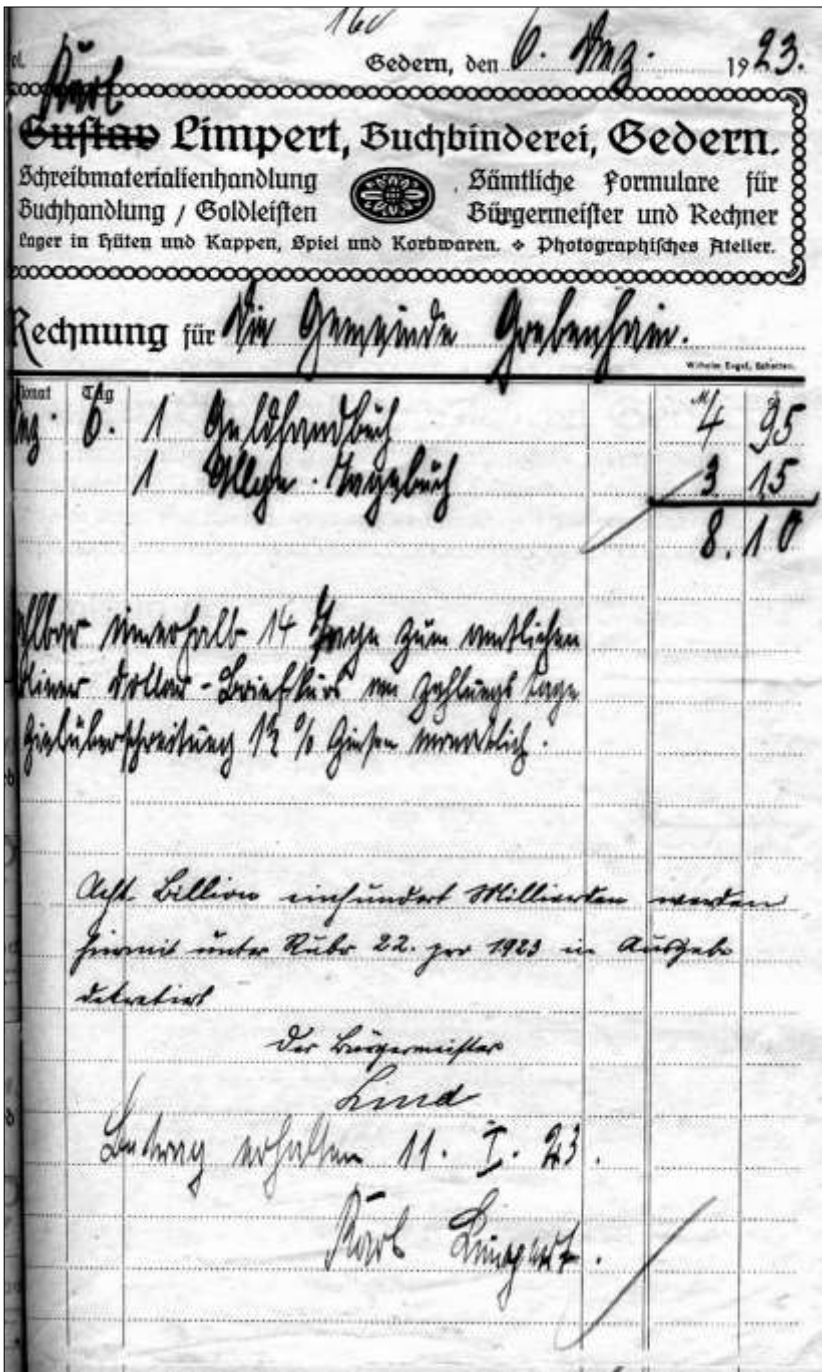 160
Gedern, den 6. Dez. 1923.
Karl
Gustav Limpert, Buchbinderei, Gedern.
Schreibmaterialienhandlung
Buchhandlung / Goldleisten
Sämtliche Formulare für
Bürgermeister und Rechner
Lager in Hüten und Kappen, Spiel und Korbwaren. Photographisches Atelier.
Rechnung für Die Gemeinde Grebenhain.
Wilhelm Engel, Schotten.
Monat Tag M
Dez. 6. 1 Geldhandbuch 4 95
1 Allge. Tagebuch 3 15
8.10
ahlbar innerhalb 14 Tage zum amtlichen
rliner Dollar-Briefkurs am Zahlungstage
Zielüberschreitung 1½ % Zinsen monatlich.
Acht Billion einhundert Milliarden werden
hiermit unter Rubr. 22. pro 1923 in Ausgabe
dekretiert
Der Bürgermeister
Lind
Betrag erhalten 11. I. 23.
Karl Limpert.